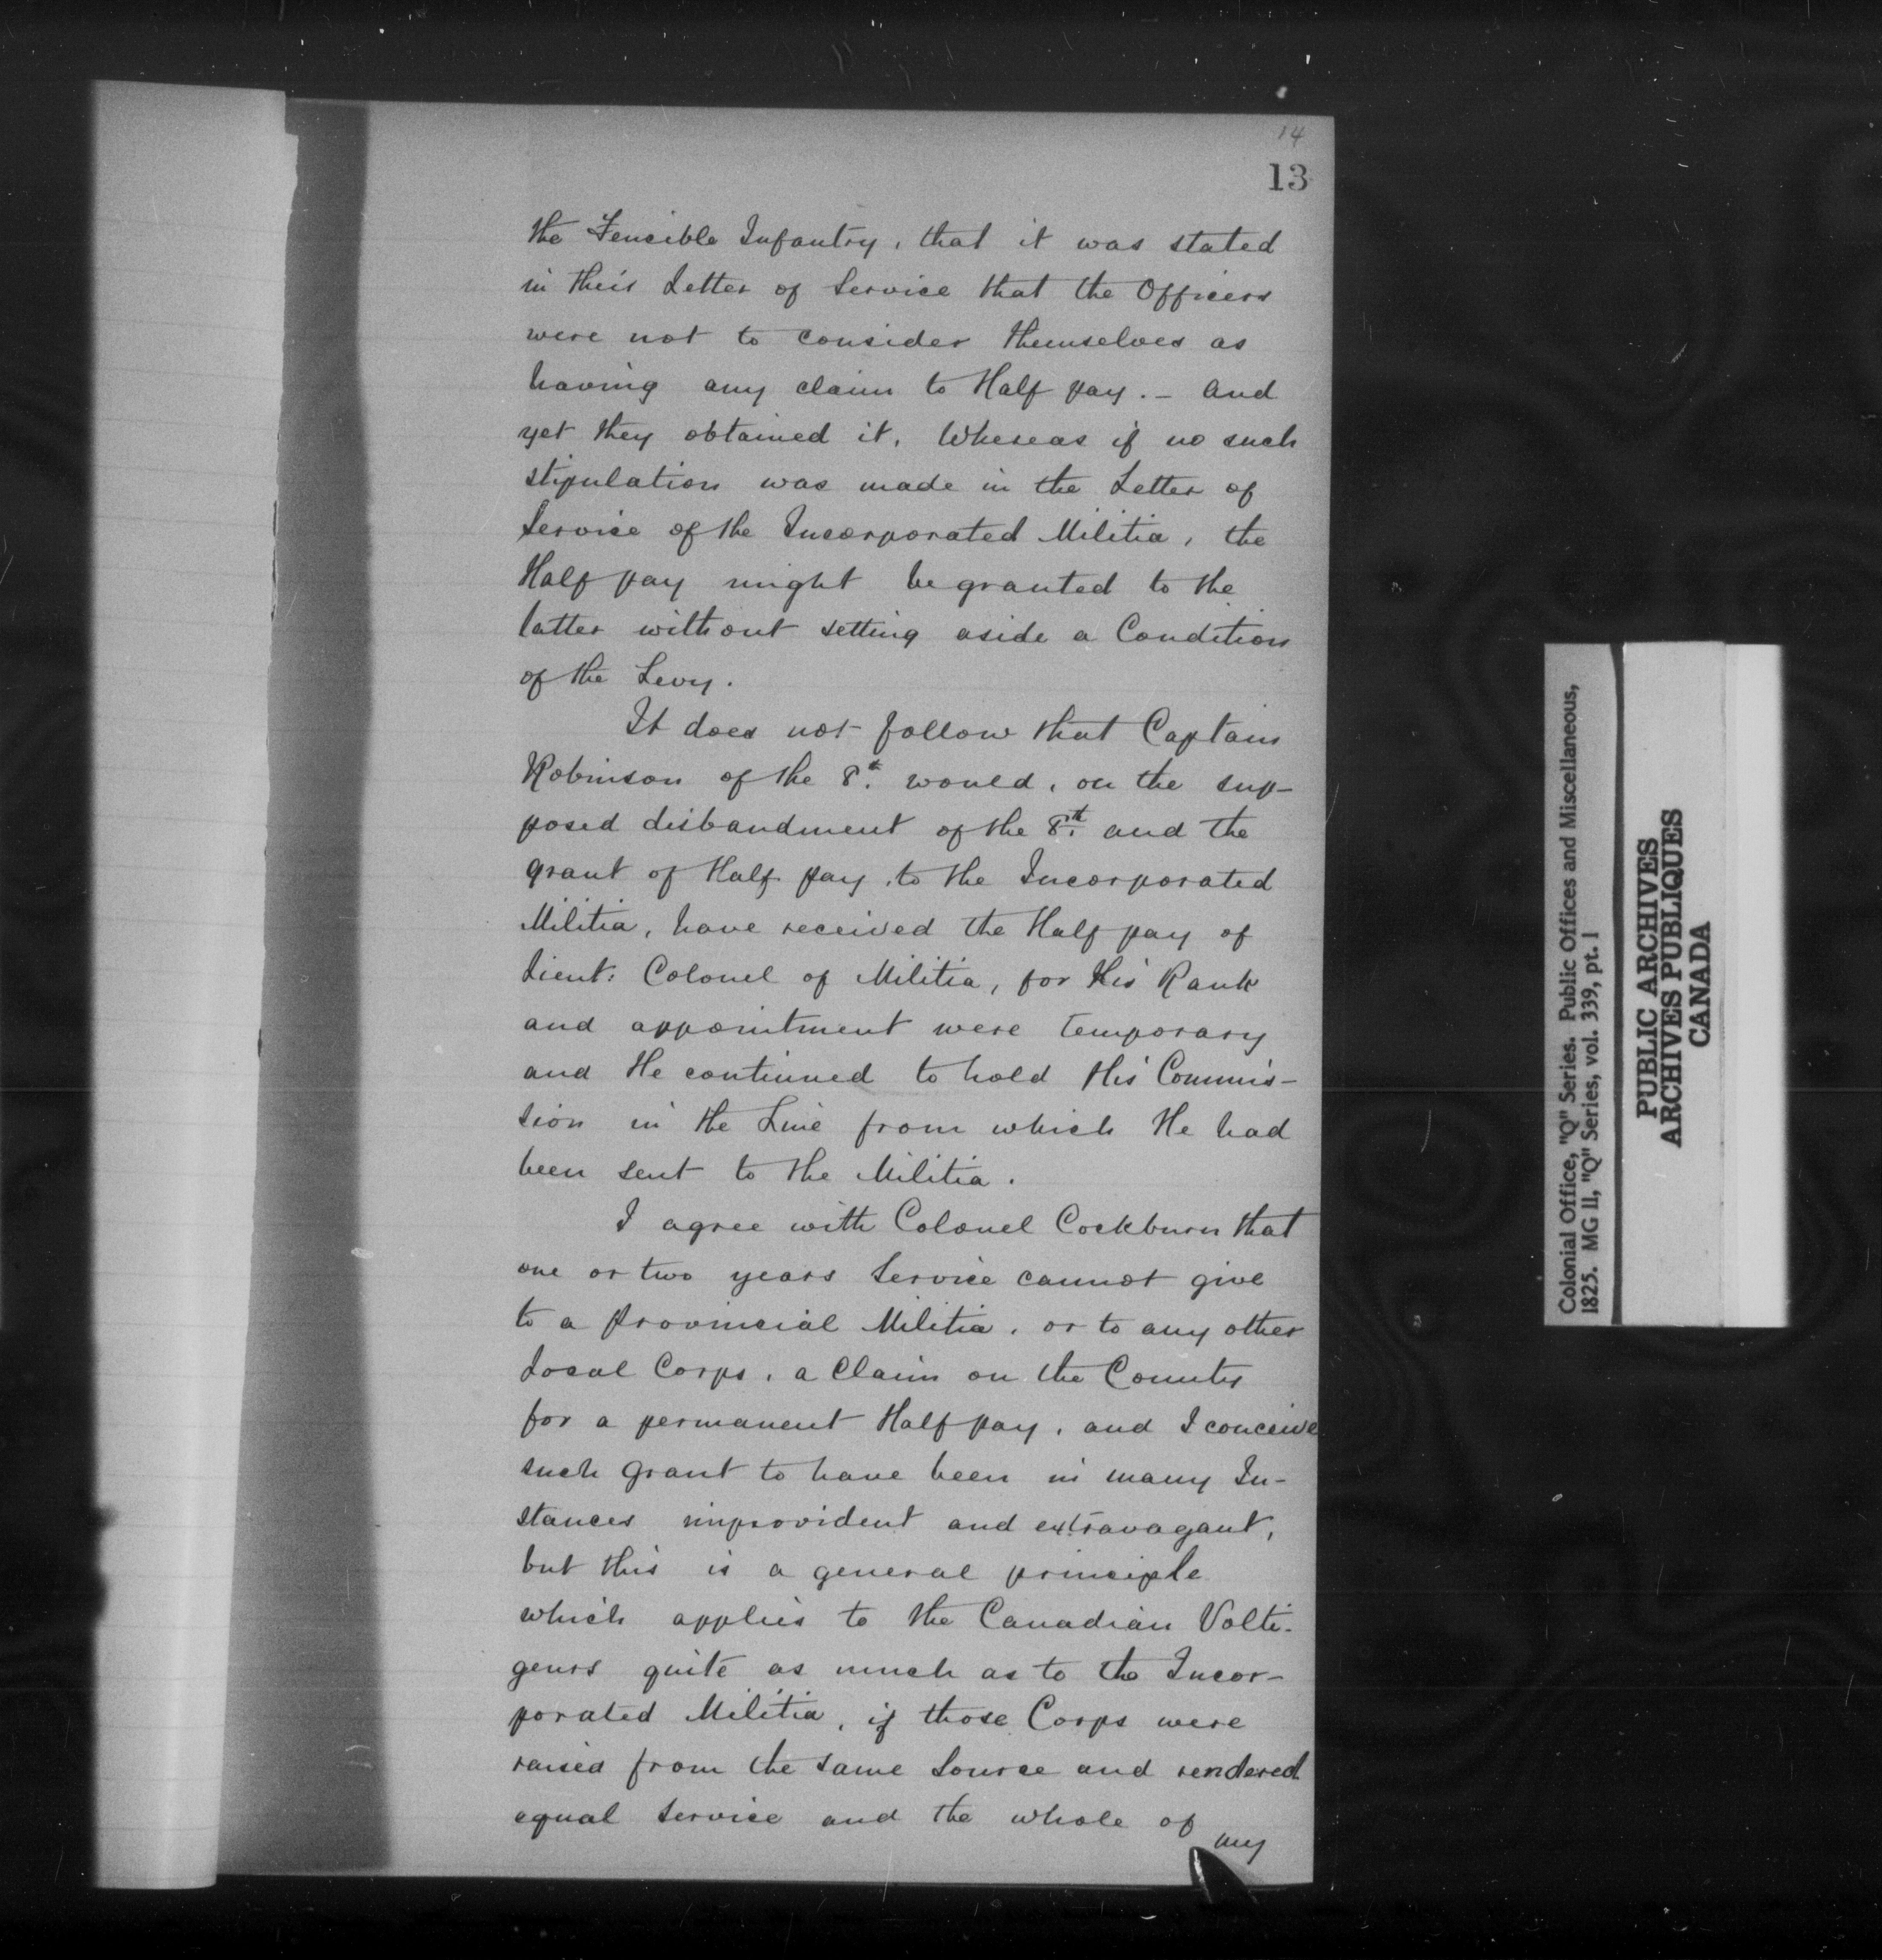 14
13
the Fencible Infantry, that it was stated
in their Letter of Service that the Officers
were not to consider themselves as
having any claim to Half pay. - and
yet they obtained it, Whereas if no such
stipulation was made in the Letter of
Service of the Incorporated Militia, the
Half pay might be granted to the
latter without setting aside a Condition
of the Levy.
It does not follow that Captain
Robinson of the 8th. would, on the sup-
posed disbandment of the 8th. and the
grant of Half pay, to the Incorporated
Militia, have received the Half pay of
Lieut: Colonel of Militia, for His Rank
and appointment were temporary
and He continued to hold His Commis-
sion in the Line from which He had
been sent to the Militia.
I agree with Colonel Cockburn that
one or two years Service cannot give
to a Provincial Militia, or to any other
Local Corps, a Claim on the Country
for a permanent Half pay, and I conceive
such grant to have been in many In-
stances improvident and extravagant,
but this is a general principle
which applies to the Canadian Volti-
geurs quite as much as to the Incor-
porated Militia, if those Corps were
raised from the same Source and rendered
equal service and the whole of
my
Colonial Office, "Q" Series. Public Offices and Miscellaneous,
1825. MG 11, "Q" Series, vol. 339, pt. 1
PUBLIC ARCHIVES
ARCHIVES PUBLIQUES
CANADA